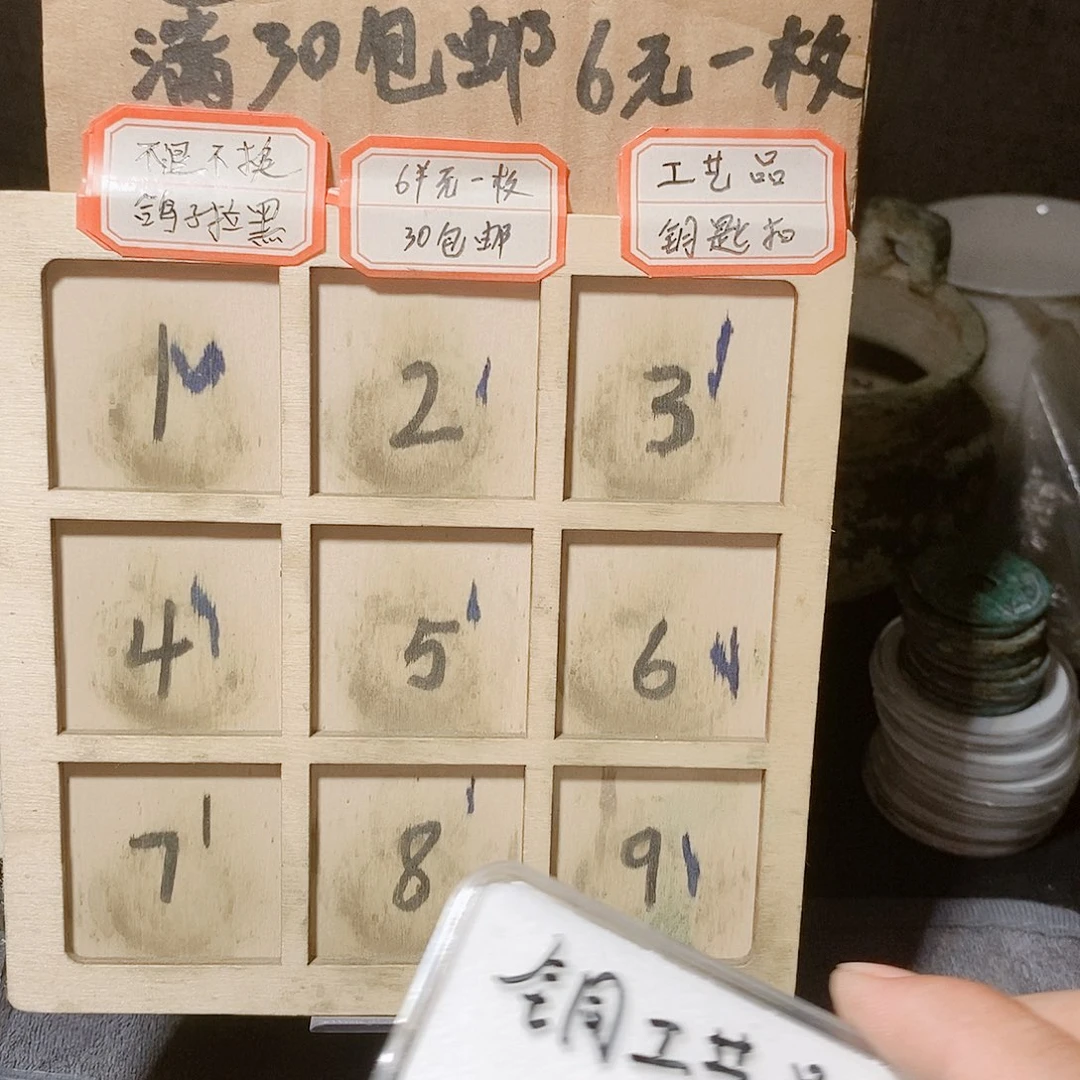 满30包邮 6元一枚
不退不换
鸽子拉黑
6羊元一枚
30包邮
工艺品
钥匙扣
1
2
3
4
5
6
7
8
9
铜工艺